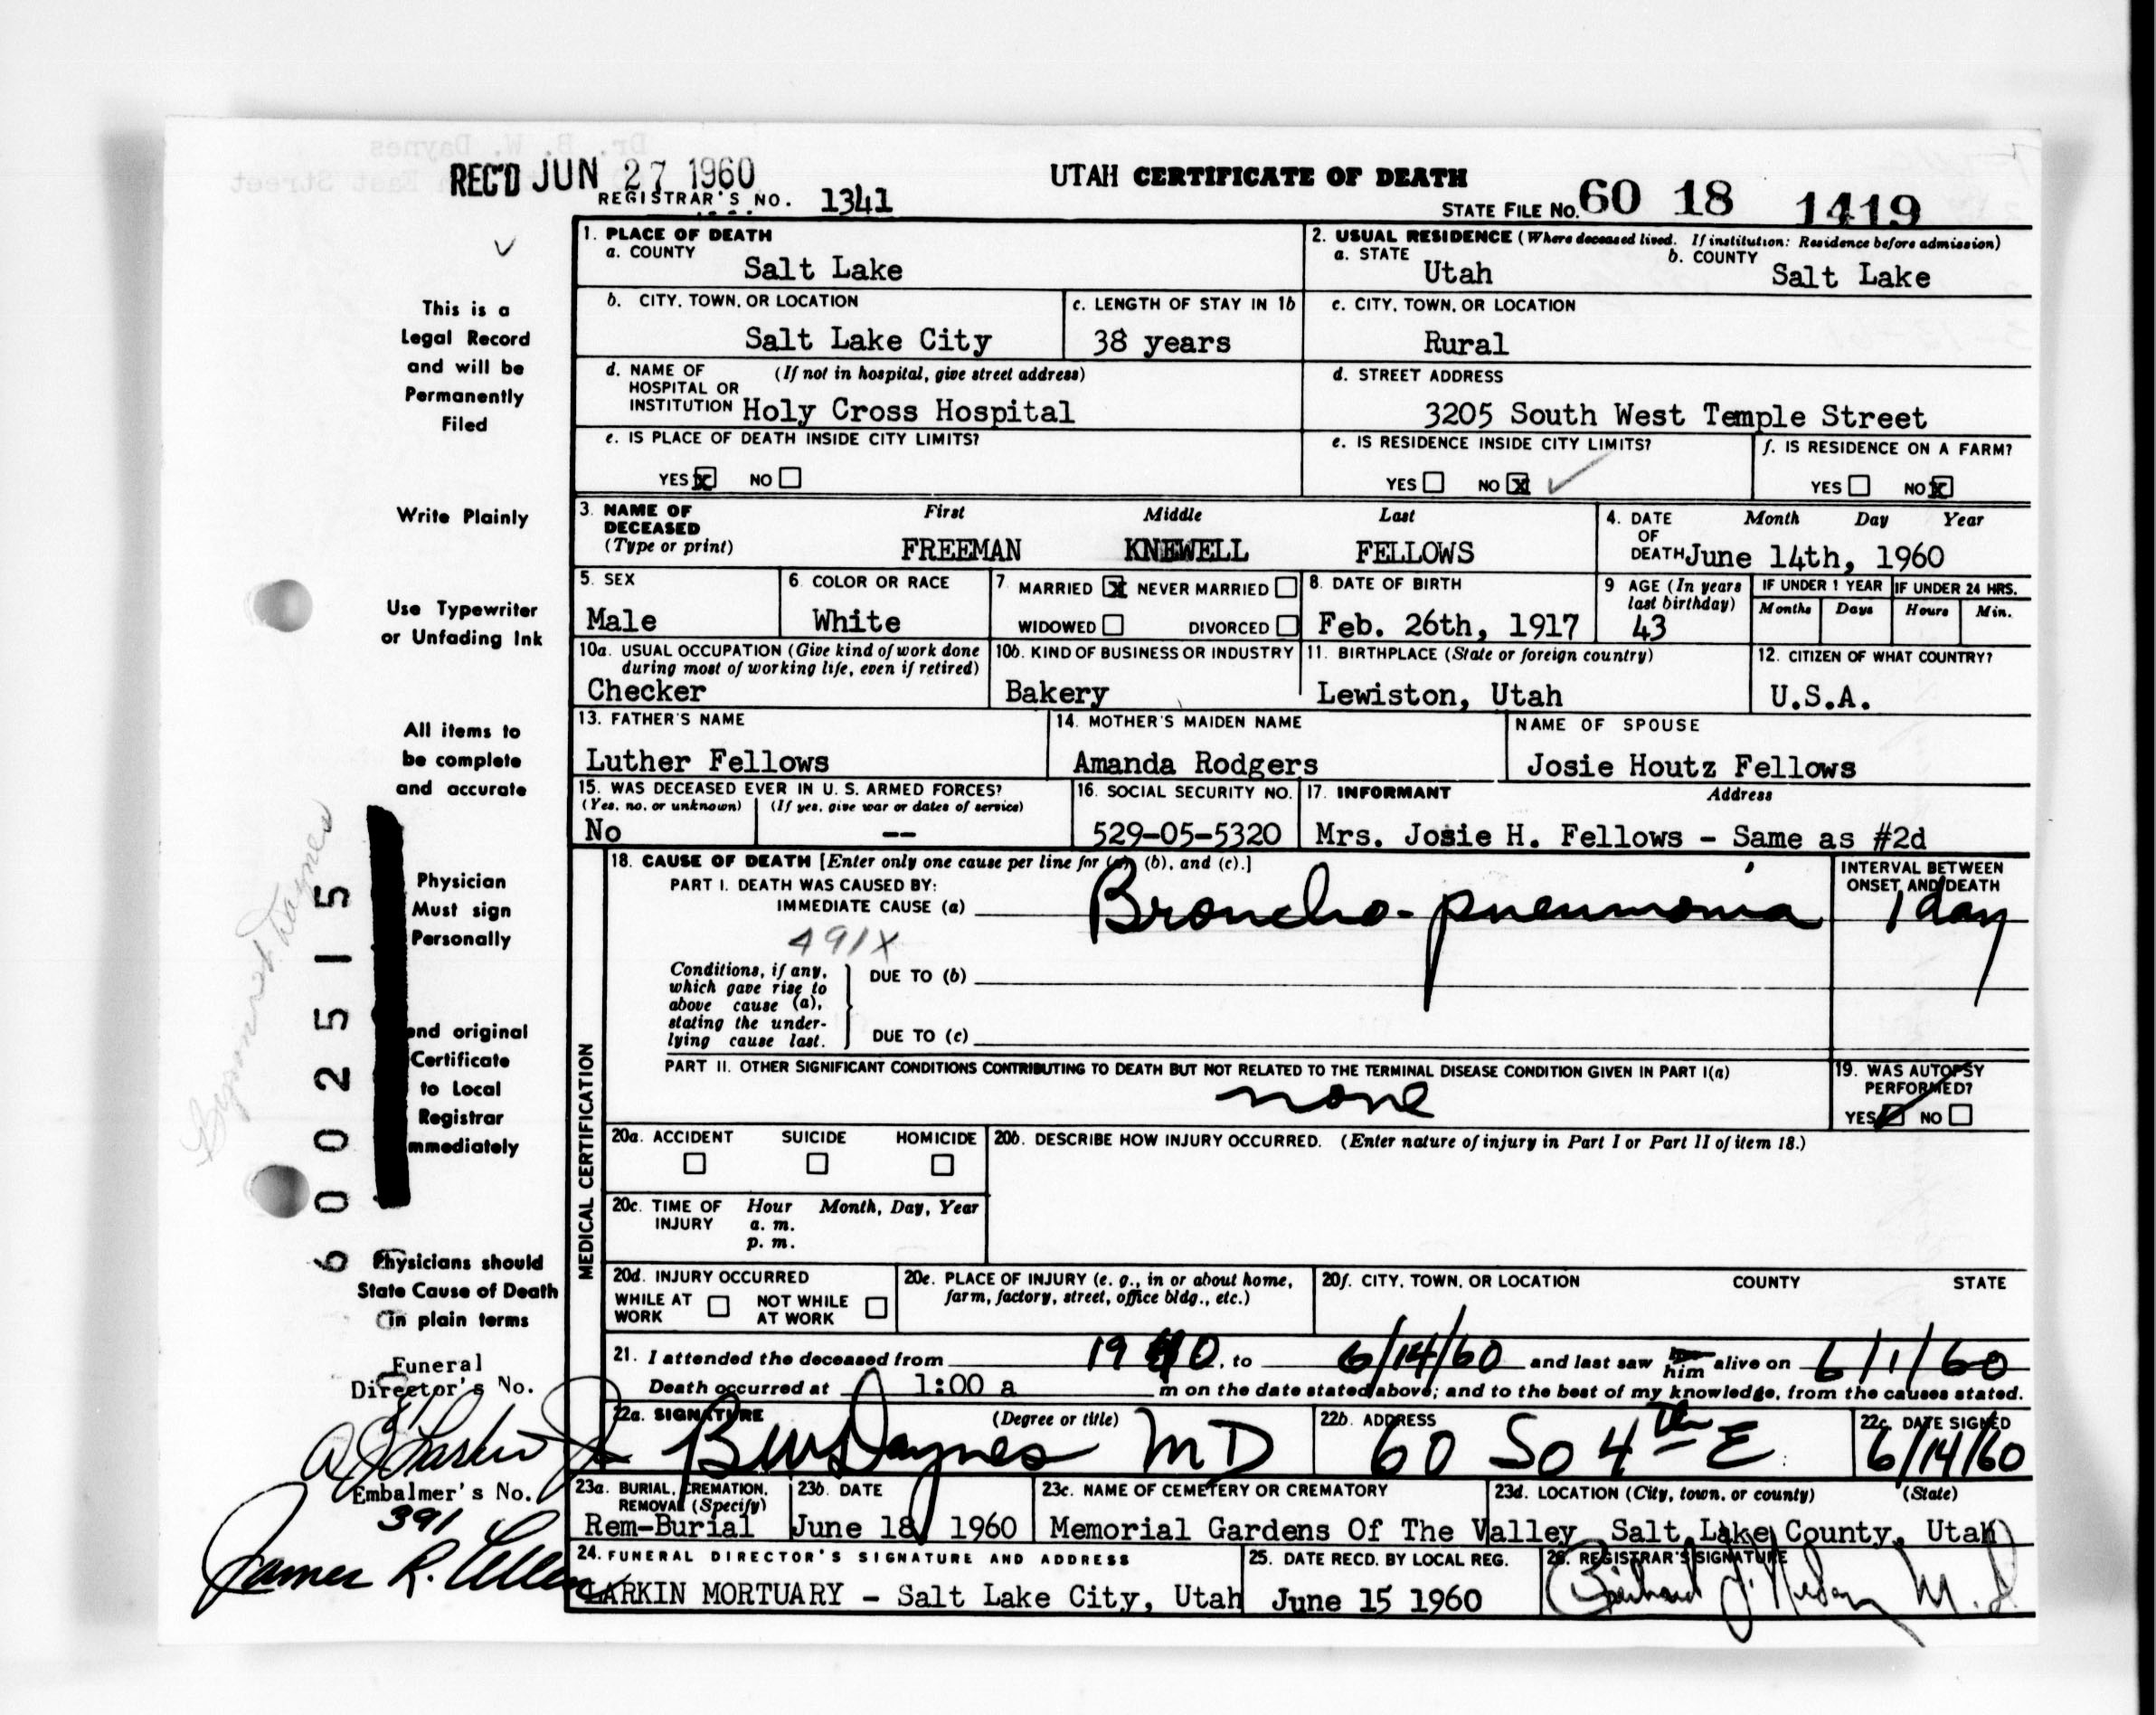 REC'D JUN 27 1960
REGISTRAR'S NO. 1341
UTAH CERTIFICATE OF DEATH
STATE FILE NO. 60 18 1419
This is a
Legal Record
and will be
Permanently
Filed
Write Plainly
Use Typewriter
or Unfading Ink
All items to
be complete
and accurate
Physician
Must sign
Personally
end original
Certificate
to Local
Registrar
mmediately
Physicians should
State Cause of Death
in plain terms
6 0 0 2 5 1 5
Funeral
Director's No.
Embalmer's No.
391
James R. Allen
1. PLACE OF DEATH
a. COUNTY Salt Lake
2. USUAL RESIDENCE (Where deceased lived. If institution: Residence before admission)
a. STATE Utah b. COUNTY Salt Lake
b. CITY, TOWN, OR LOCATION Salt Lake City
c. LENGTH OF STAY IN 1b 38 years
c. CITY, TOWN, OR LOCATION Rural
d. NAME OF HOSPITAL OR INSTITUTION (If not in hospital, give street address) Holy Cross Hospital
d. STREET ADDRESS 3205 South West Temple Street
e. IS PLACE OF DEATH INSIDE CITY LIMITS?
YES x NO
e. IS RESIDENCE INSIDE CITY LIMITS?
YES NO x
f. IS RESIDENCE ON A FARM?
YES NO x
3. NAME OF DECEASED (Type or print)
First Middle Last
FREEMAN KNEWELL FELLOWS
4. DATE OF DEATH Month Day Year
June 14th, 1960
5. SEX Male
6. COLOR OR RACE White
7. MARRIED x NEVER MARRIED
WIDOWED DIVORCED
8. DATE OF BIRTH Feb. 26th, 1917
9 AGE (In years last birthday) 43
IF UNDER 1 YEAR Months Days
IF UNDER 24 HRS. Hours Min.
10a. USUAL OCCUPATION (Give kind of work done during most of working life, even if retired) Checker
10b. KIND OF BUSINESS OR INDUSTRY Bakery
11. BIRTHPLACE (State or foreign country) Lewiston, Utah
12. CITIZEN OF WHAT COUNTRY? U.S.A.
13. FATHER'S NAME Luther Fellows
14. MOTHER'S MAIDEN NAME Amanda Rodgers
NAME OF SPOUSE Josie Houtz Fellows
15. WAS DECEASED EVER IN U. S. ARMED FORCES?
(Yes, no, or unknown) No (If yes, give war or dates of service) --
16. SOCIAL SECURITY NO. 529-05-5320
17. INFORMANT Address
Mrs. Josie H. Fellows - Same as #2d
MEDICAL CERTIFICATION
18. CAUSE OF DEATH [Enter only one cause per line for (a), (b), and (c).]
PART I. DEATH WAS CAUSED BY:
IMMEDIATE CAUSE (a) Broncho-pneumonia
INTERVAL BETWEEN ONSET AND DEATH
1 day
491X
Conditions, if any, which gave rise to above cause (a), stating the underlying cause last.
DUE TO (b)
DUE TO (c)
PART II. OTHER SIGNIFICANT CONDITIONS CONTRIBUTING TO DEATH BUT NOT RELATED TO THE TERMINAL DISEASE CONDITION GIVEN IN PART I(a)
none
19. WAS AUTOPSY PERFORMED?
YES NO
20a. ACCIDENT SUICIDE HOMICIDE
20b. DESCRIBE HOW INJURY OCCURRED. (Enter nature of injury in Part I or Part II of item 18.)
20c. TIME OF INJURY Hour Month, Day, Year
a. m.
p. m.
20d. INJURY OCCURRED
WHILE AT WORK NOT WHILE AT WORK
20e. PLACE OF INJURY (e. g., in or about home, farm, factory, street, office bldg., etc.)
20f. CITY, TOWN, OR LOCATION COUNTY STATE
21. I attended the deceased from 1940, to 6/14/60 and last saw him alive on 6/1/60
Death occurred at 1:00 a m on the date stated above; and to the best of my knowledge, from the causes stated.
22a. SIGNATURE (Degree or title) BW Daynes MD
22b. ADDRESS 60 So 4th E
22c. DATE SIGNED 6/14/60
23a. BURIAL, CREMATION, REMOVAL (Specify) Rem-Burial
23b. DATE June 18, 1960
23c. NAME OF CEMETERY OR CREMATORY Memorial Gardens Of The Valley
23d. LOCATION (City, town, or county) (State) Salt Lake County, Utah
24. FUNERAL DIRECTOR'S SIGNATURE AND ADDRESS
LARKIN MORTUARY - Salt Lake City, Utah
25. DATE RECD. BY LOCAL REG. June 15 1960
26. REGISTRAR'S SIGNATURE